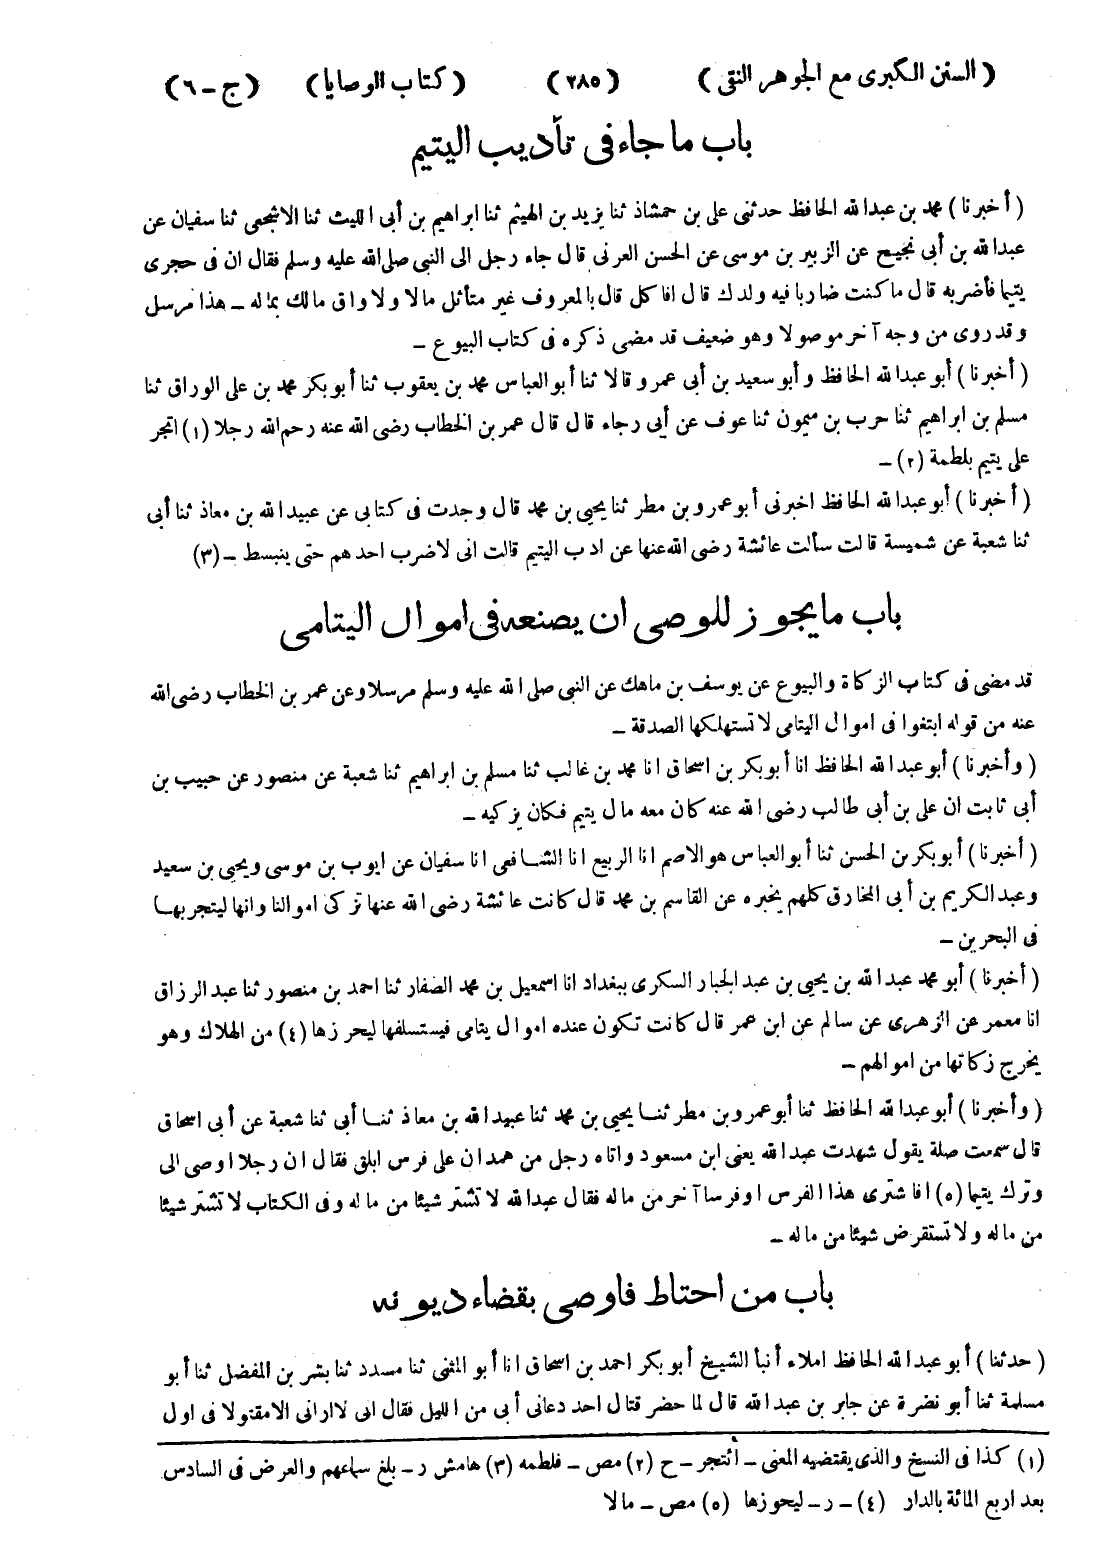 ( السنن الكبرى مع الجوهر النقى ) ( ٢٨٥ ) ( كتاب الوصايا ) ( ج - ٦ )
باب ما جاء فى تأديب اليتيم
( أخبرنا ) محمد بن عبدالله الحافظ حدثنى على بن حمشاذ ثنا يزيد بن الهيثم ثنا ابراهيم بن أبى الليث ثنا الاشجعى ثنا سفيان عن
عبدالله بن أبى نجيح عن الزبير بن موسى عن الحسن العرنى قال جاء رجل الى النبى صلى الله عليه وسلم فقال ان فى حجرى
يتيما فأضربه قال ما كنت ضاربا فيه ولدك قال افآكل قال بالمعروف غير متأثل مالا ولا واق مالك بماله - هذا مرسل
وقد روى من وجه آخر موصولا وهو ضعيف قد مضى ذكره فى كتاب البيوع -
( أخبرنا ) أبو عبدالله الحافظ وأبو سعيد بن أبى عمرو قالا ثنا أبو العباس محمد بن يعقوب ثنا أبو بكر محمد بن على الوراق ثنا
مسلم بن ابراهيم ثنا حرب بن ميمون ثنا عوف عن أبى رجاء قال قال عمر بن الخطاب رضى الله عنه رحم الله رجلا (١) اتجر
على يتيم بلطمة (٢) -
( أخبرنا ) أبو عبدالله الحافظ اخبرنى أبو عمرو بن مطر ثنا يحيى بن محمد قال وجدت فى كتابى عن عبيد الله بن معاذ ثنا أبى
ثنا شعبة عن شميسة قالت سألت عائشة رضى الله عنها عن ادب اليتيم قالت انى لاضرب احدهم حتى ينبسط - (٣)
باب ما يجوز للوصى ان يصنعه فى اموال اليتامى
قد مضى فى كتاب الزكاة والبيوع عن يوسف بن ماهك عن النبى صلى الله عليه وسلم مرسلا وعن عمر بن الخطاب رضى الله
عنه من قوله ابتغوا فى اموال اليتامى لا تستهلكها الصدقة -
( وأخبرنا ) أبو عبدالله الحافظ انا أبو بكر بن اسحاق انا محمد بن غالب ثنا مسلم بن ابراهيم ثنا شعبة عن منصور عن حبيب بن
أبى ثابت ان على بن أبى طالب رضى الله عنه كان معه مال يتيم فكان يزكيه -
( أخبرنا ) أبو بكر بن الحسن ثنا أبو العباس هو الاصم انا الربيع انا الشافعى انا سفيان عن ايوب بن موسى ويحيى بن سعيد
وعبد الكريم بن أبى المخارق كلهم يخبره عن القاسم بن محمد قال كانت عائشة رضى الله عنها تزكى اموالنا وانها ليتجر بها
فى البحرين -
( أخبرنا ) أبو محمد عبدالله بن يحيى بن عبد الجبار السكرى ببغداد انا اسمعيل بن محمد الصفار ثنا احمد بن منصور ثنا عبد الرزاق
انا معمر عن الزهرى عن سالم عن ابن عمر قال كانت تكون عنده اموال يتامى فيستسلفها ليحرزها (٤) من الهلاك وهو
يخرج زكاتها من اموالهم -
( وأخبرنا ) أبو عبدالله الحافظ ثنا أبو عمرو بن مطر ثنا يحيى بن محمد ثنا عبيد الله بن معاذ ثنا أبى ثنا شعبة عن أبى اسحاق
قال سمعت صلة يقول شهدت عبدالله يعنى ابن مسعود واتاه رجل من همدان على فرس ابلق فقال ان رجلا اوصى الى
وترك يتيما (٥) افاشترى هذا الفرس او فرسا آخر من ماله فقال عبدالله لا تشتر شيئا من ماله وفى الكتاب لا تشتر شيئا
من ماله ولا تستقرض شيئا من ماله -
باب من احتاط فاوصى بقضاء ديونه
( حدثنا ) أبو عبدالله الحافظ املاء أنبأ الشيخ أبو بكر احمد بن اسحاق انا أبو المثنى ثنا مسدد ثنا بشر بن المفضل ثنا أبو
مسلمة ثنا أبو نضرة عن جابر بن عبدالله قال لما حضر قتال احد دعانى أبى من الليل فقال انى لا ارانى الا مقتولا فى اول
(١) كذا فى النسخ والذى يقتضيه المعنى - أئتجر - ح (٢) مص - فلطمه (٣) هامش ر - بلغ سماعهم والعرض فى السادس
بعد اربع المائة بالدار (٤) - ر - ليحوزها (٥) مص - مالا